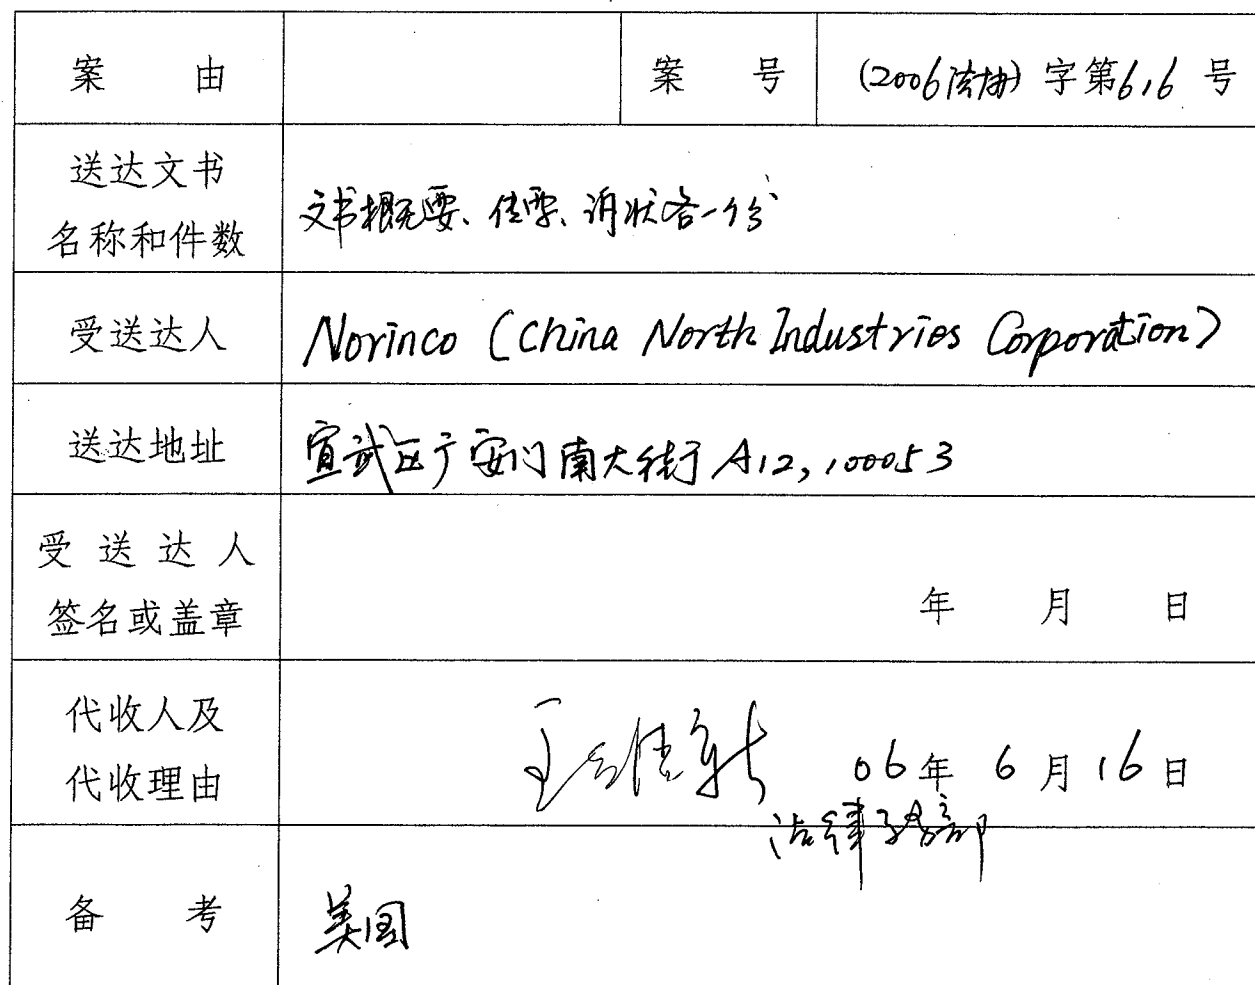 案 由
案 号
(2006法协) 字第616 号
送达文书
名称和件数
文书概要、传票、诉状各一份
受送达人
Norinco (China North Industries Corporation)
送达地址
宣武区广安门南大街 A12, 100053
受 送 达 人
签名或盖章
年 月 日
代收人及
代收理由
王
06年 6月16日
法律事务部
备 考
美国